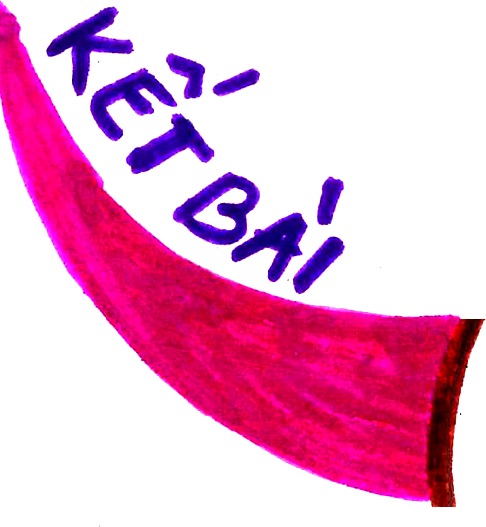 KẾT BÀI